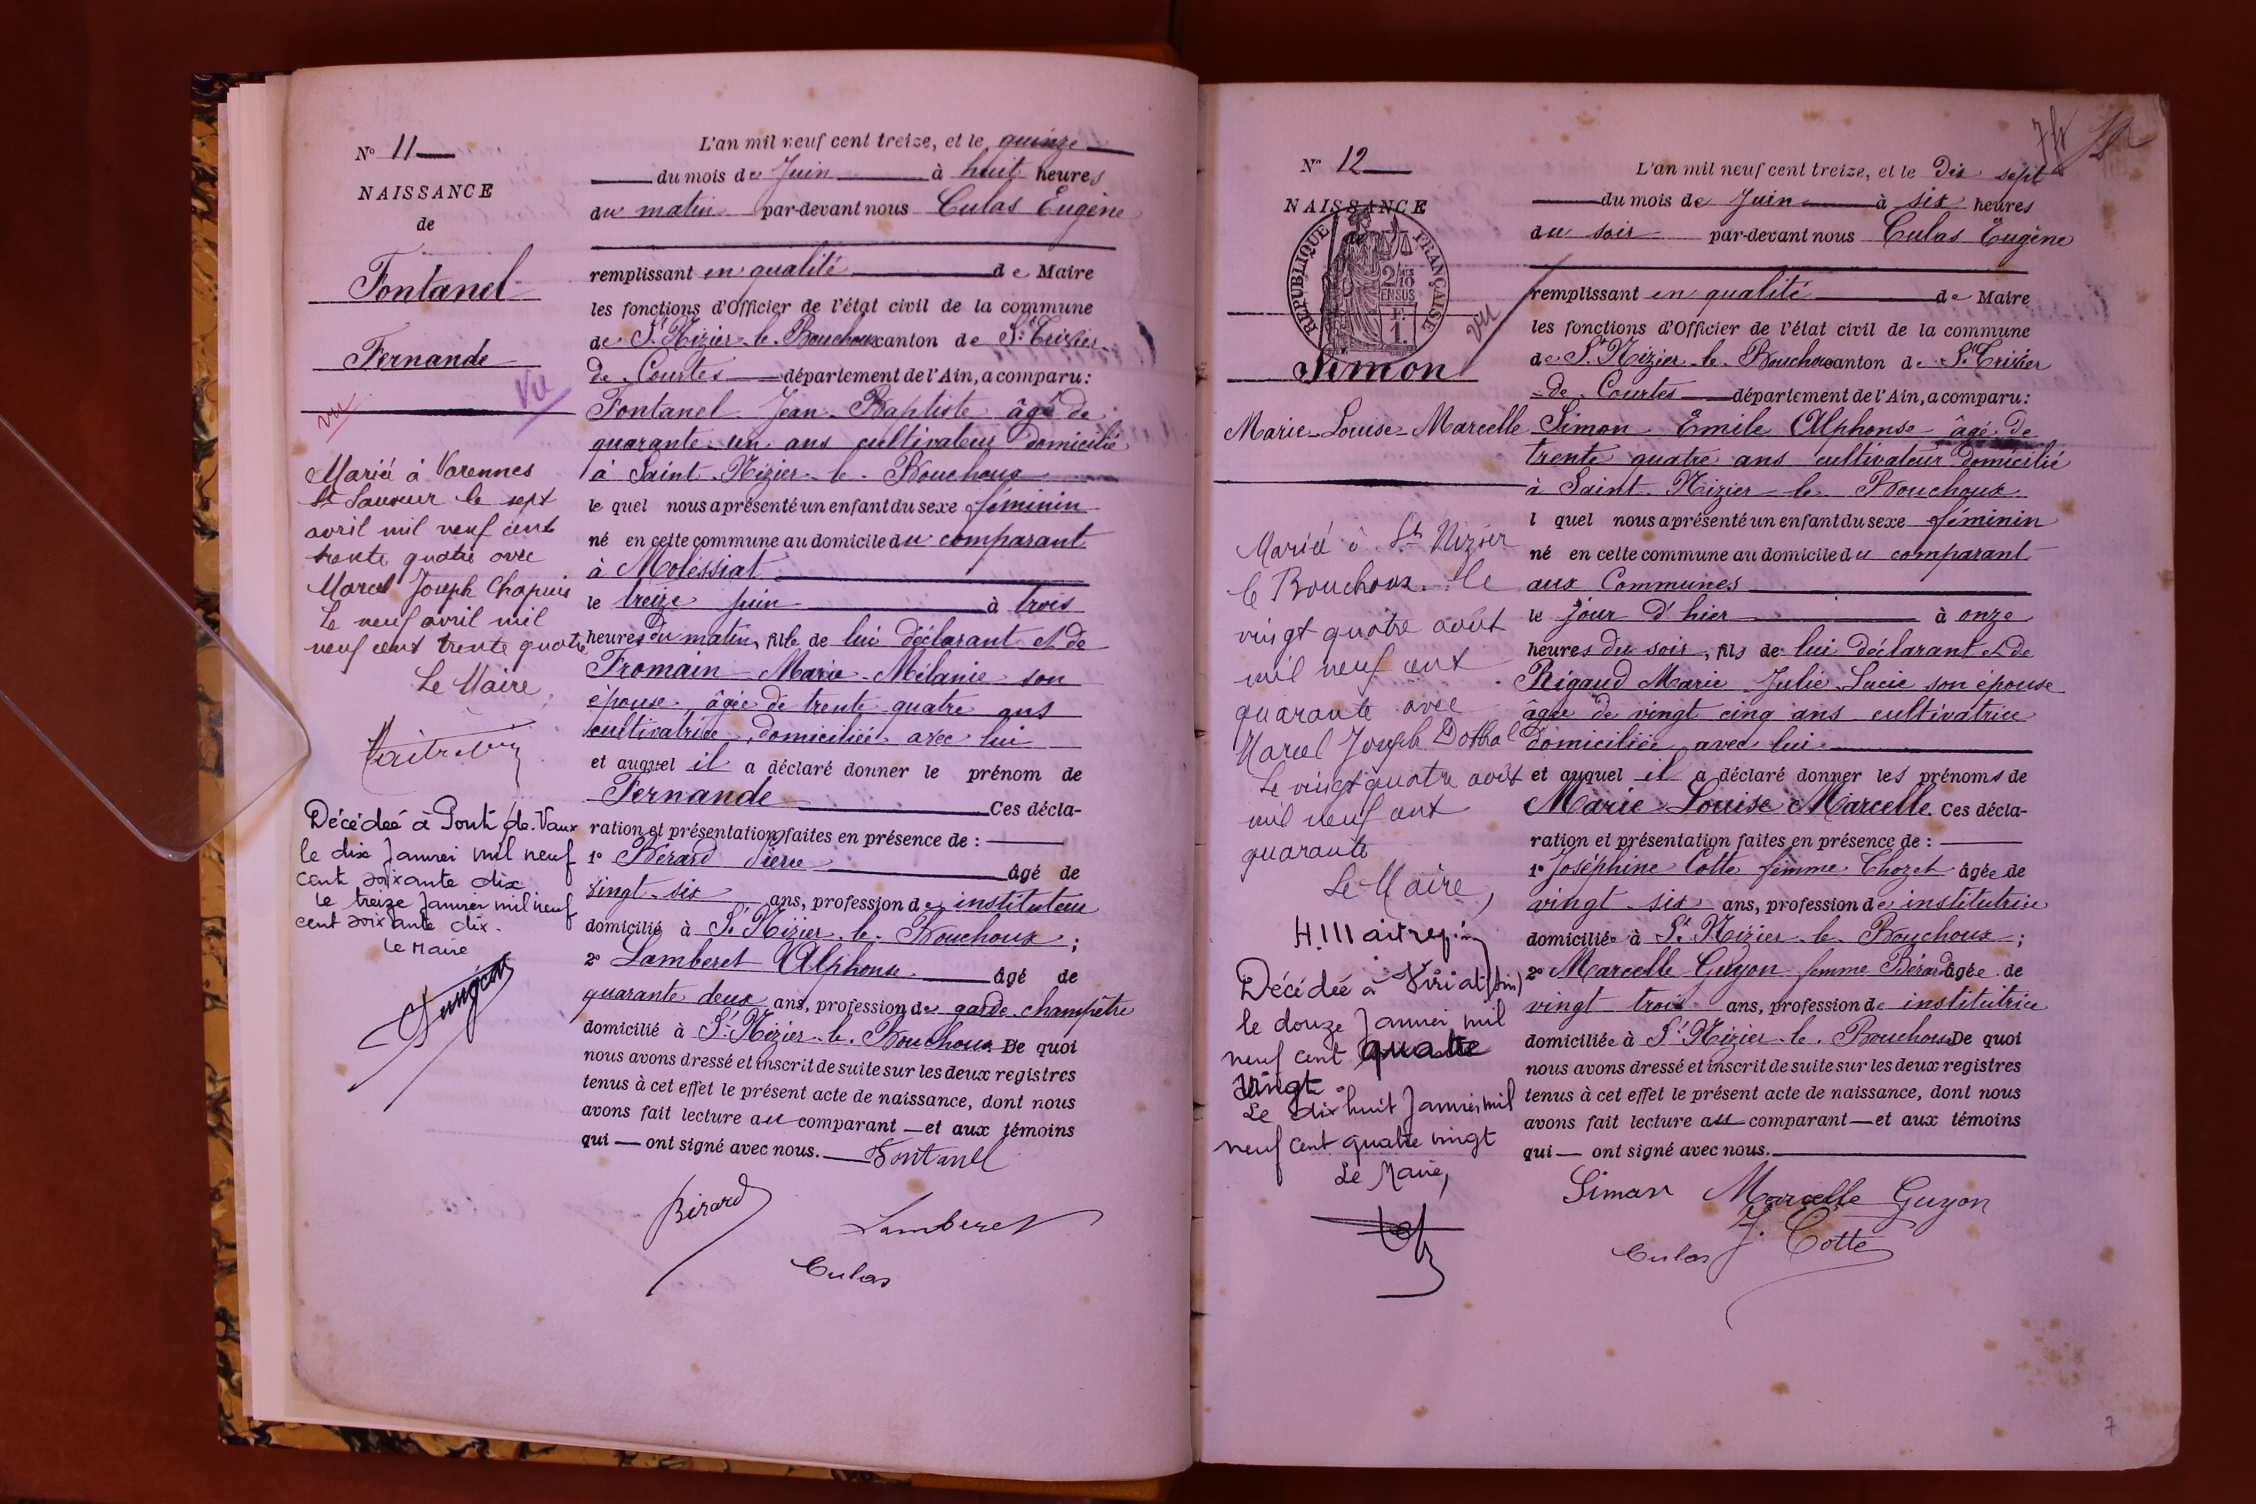 N° 11
NAISSANCE
de
Fontanel
Fernande
vu
Vu
Mariée à Varennes
St Sauveur le sept
avril mil neuf cent
trente quatre avec
Marcel Joseph Chapuis
Le neuf avril mil
neuf cent trente quatre
Le Maire,
Décédée à Pont de Vaux
le dix Janvier mil neuf
cent soixante dix
le treize Janvier mil neuf
cent soixante dix.
Le Maire
L'an mil neuf cent treize, et le quinze
du mois de Juin à huit heures
du matin par-devant nous Culas Eugène
remplissant en qualité de Maire
les fonctions d'Officier de l'état civil de la commune
de St Nizier-le-Bouchoux canton de St Trivier
de Courtes département de l'Ain, a comparu:
Fontanel Jean-Baptiste âgé de
quarante-un ans cultivateur domicilié
à Saint-Nizier-le-Bouchoux
le quel nous a présenté un enfant du sexe féminin
né en cette commune au domicile du comparant
à Molessiat
le treize juin à trois
heures du matin, fille de lui déclarant et de
Fromain Marie-Mélanie son
épouse, âgée de trente quatre ans
cultivatrice, domiciliée avec lui
et auquel il a déclaré donner le prénom de
Fernande Ces décla-
ration et présentation faites en présence de:
1° Bérard Pierre âgé de
vingt-six ans, profession de instituteur
domicilié à St Nizier-le-Bouchoux;
2° Lamberet Alphonse âgé de
quarante deux ans, profession de garde-champêtre
domicilié à St Nizier-le-Bouchoux De quoi
nous avons dressé et inscrit de suite sur les deux registres
tenus à cet effet le présent acte de naissance, dont nous
avons fait lecture au comparant — et aux témoins
qui — ont signé avec nous. Fontanel
Bérard
Lamberet
Culas
N° 12
NAISSANCE
de
RÉPUBLIQUE FRANÇAISE
2/10
EN SUS
1 F.
vu
Simon
Marie-Louise-Marcelle
Mariée à St Nizier
le Bouchoux le
vingt quatre août
mil neuf cent
quarante avec
Marcel Joseph
Le vingt quatre août
mil neuf cent
quarante
Le Maire,
Décédée à Viriat (Ain)
le douze Janvier mil
neuf cent quatre
vingt.
Le dix huit Janvier mil
neuf cent quatre vingt
Le Maire,
L'an mil neuf cent treize, et le Dix sept
du mois de Juin à six heures
du soir par-devant nous Culas Eugène
remplissant en qualité de Maire
les fonctions d'Officier de l'état civil de la commune
de St Nizier-le-Bouchoux canton de St Trivier
de Courtes département de l'Ain, a comparu:
Simon Emile Alphonse âgé de
trente quatre ans cultivateur domicilié
à Saint-Nizier-le-Bouchoux
l quel nous a présenté un enfant du sexe féminin
né en cette commune au domicile du comparant
aux Communes
le jour d'hier à onze
heures du soir, fils de lui déclarant et de
Rigaud Marie Julie Lucie son épouse
âgée de vingt cinq ans cultivatrice
domiciliée avec lui
et auquel il a déclaré donner les prénoms de
Marie-Louise Marcelle. Ces décla-
ration et présentation faites en présence de:
1° Joséphine Cotte femme Chozet âgée de
vingt-six ans, profession de institutrice
domiciliée à St Nizier-le-Bouchoux;
2° Marcelle Guyon femme Bérard âgée de
vingt trois ans, profession de institutrice
domiciliée à St Nizier-le-Bouchoux De quoi
nous avons dressé et inscrit de suite sur les deux registres
tenus à cet effet le présent acte de naissance, dont nous
avons fait lecture au comparant — et aux témoins
qui — ont signé avec nous.
Simon Marcelle Guyon
J. Cotte
Culas
7